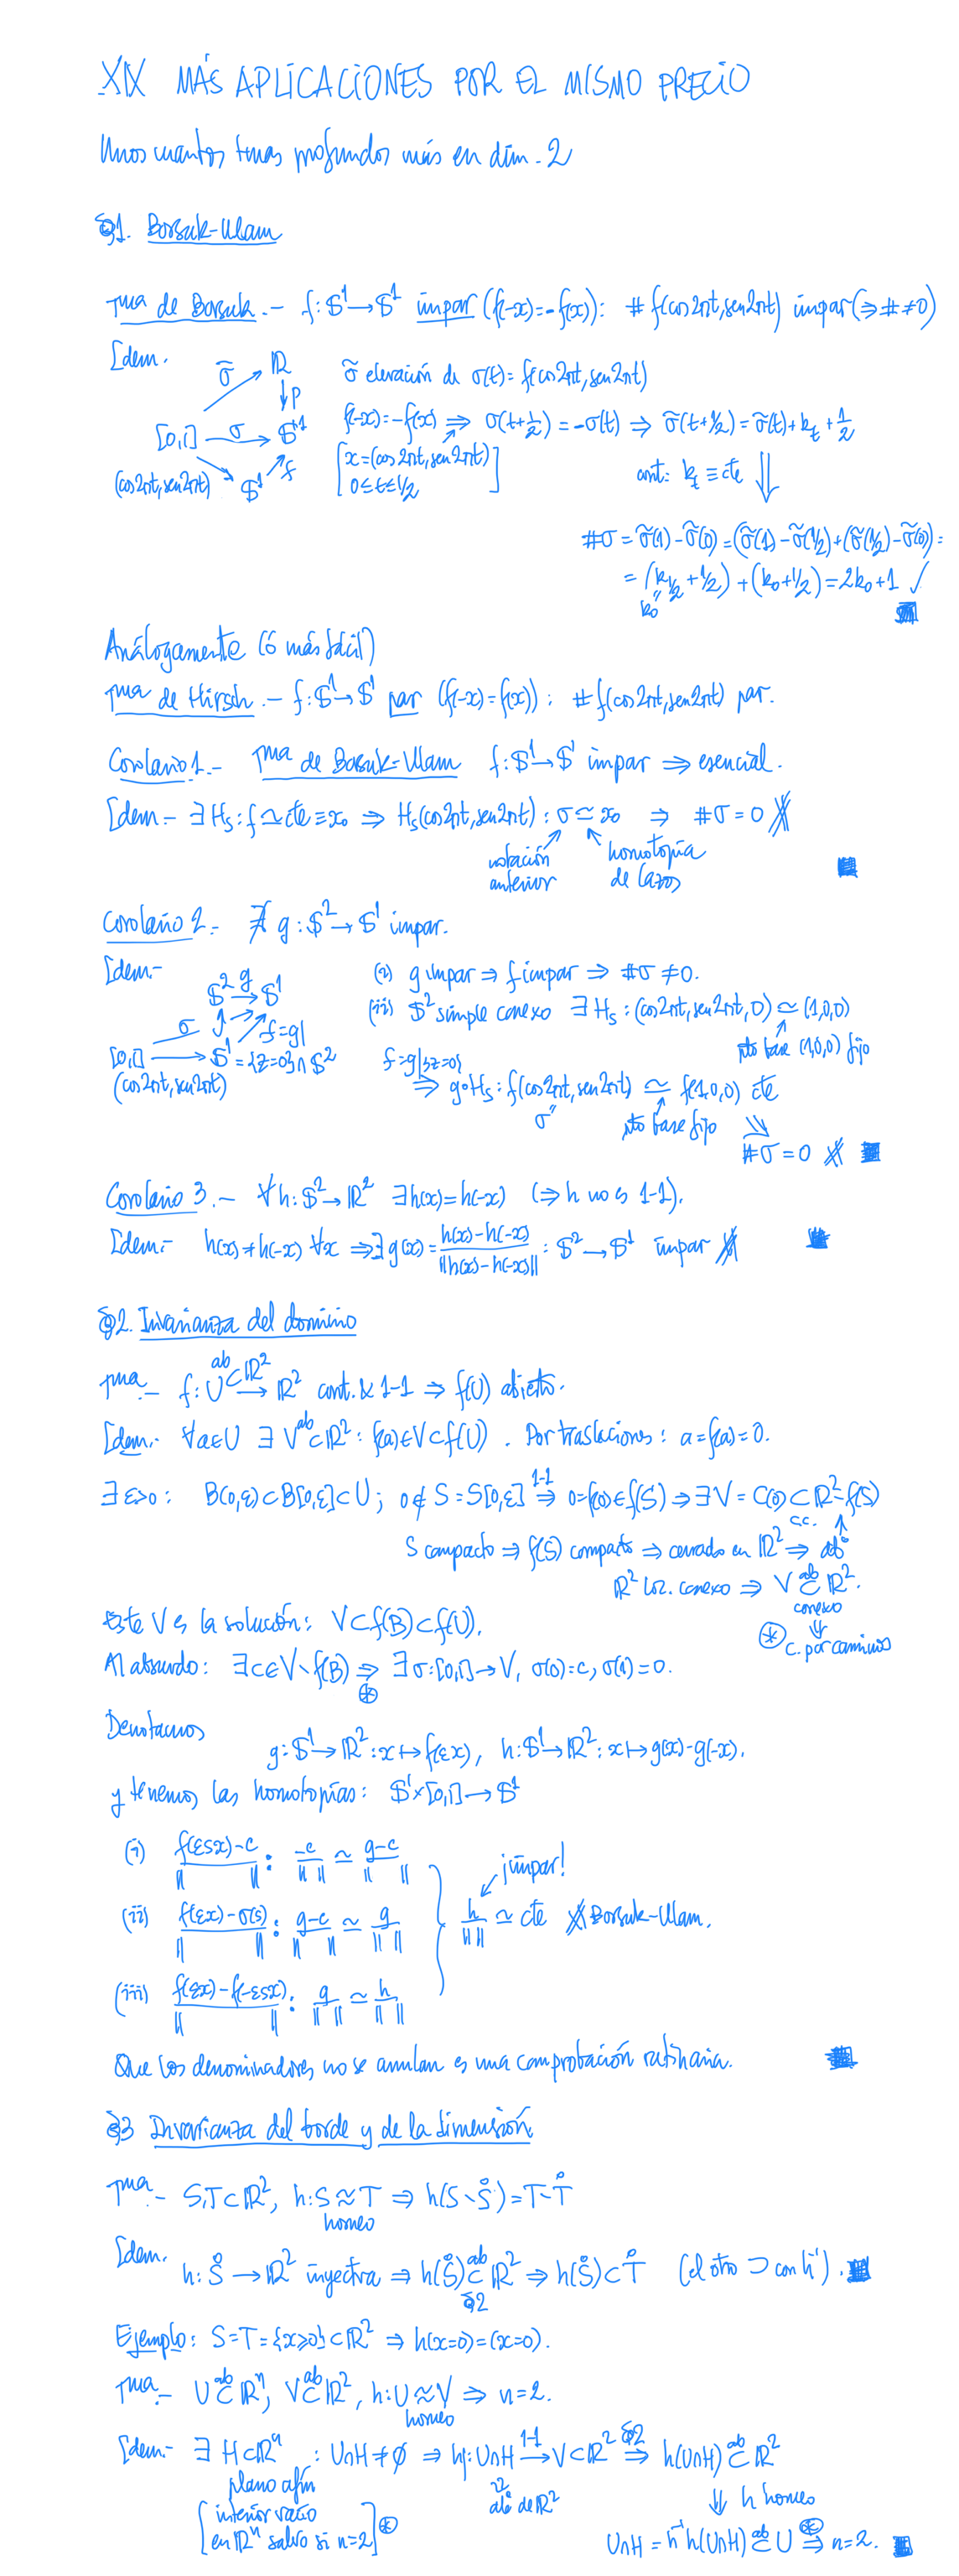 XIX MÁS APLICACIONES POR EL MISMO PRECIO
Unos cuantos tmas profundos más en dim. 2
§1. Borsuk-Ulam
Tma de Borsuk.- f: 𝕊¹→𝕊¹ impar (f(-x)=-f(x)): # f(cos2πt, sen2πt) impar (⇒ # ≠ 0)
[dem.
σ̃ ℝ
↓p
[0,1] →σ 𝕊¹
(cos2πt, sen2πt) 𝕊¹ f
σ̃ elevación de σ(t) = f(cos2πt, sen2πt)
f(-x)=-f(x) ⇒ σ(t+1/2) = -σ(t) ⇒ σ̃(t+1/2) = σ̃(t)+k_t+1/2
[x=(cos2πt, sen2πt)
0≤t≤1/2]
cont: k_t ≡ cte ⇓
#σ = σ̃(1)-σ̃(0) = (σ̃(1)-σ̃(1/2))+(σ̃(1/2)-σ̃(0)) =
= (k_{1/2}+1/2) + (k_0+1/2) = 2k_0+1 ✓
k_0
Análogamente (ó más fácil)
Tma de Hirsch.- f: 𝕊¹→𝕊¹ par (f(-x)=f(x)): # f(cos2πt, sen2πt) par.
Corolario 1.- Tma de Borsuk-Ulam f: 𝕊¹→𝕊¹ impar ⇒ esencial.
[dem.- ∃ H_s: f ≃ cte ≡ x₀ ⇒ H_s(cos2πt, sen2πt): σ ≃ x₀ ⇒ #σ = 0
notación anterior
homotopía de lazos
Corolario 2.- ∄ g: 𝕊²→𝕊¹ impar.
[dem.-
𝕊² →g 𝕊¹
σ f=g|
[0,1] → 𝕊¹={z=0}∩𝕊²
(cos2πt, sen2πt)
(i) g impar ⇒ f impar ⇒ #σ ≠ 0.
(ii) 𝕊² simple. conexo ∃ H_s: (cos2πt, sen2πt, 0) ≃ (1,0,0)
pto base (1,0,0) fijo
f=g|{z=0}
⇒ g∘H_s: f(cos2πt, sen2πt) ≃ f(1,0,0) cte
σ pto base fijo ⇓
#σ = 0
Corolario 3.- ∀h: 𝕊²→ℝ² ∃ h(x)=h(-x) (⇒ h no es 1-1).
[dem.- h(x)≠h(-x) ∀x ⇒ ∃ g(x) = (h(x)-h(-x))/‖h(x)-h(-x)‖ : 𝕊²→𝕊¹ impar
§2. Invarianza del dominio
Tma.- f: U ab⊂ℝ² → ℝ² cont. & 1-1 ⇒ f(U) abierto.
[dem.- ∀a∈U ∃ V ab⊂ ℝ²: f(a)∈V⊂f(U). Por traslaciones: a=f(a)=0.
∃ ε>0: B(0,ε)⊂B[0,ε]⊂U; 0∉S=S[0,ε] 1-1⇒ 0=f(0)∉f(S) ⇒ ∃ V = C(0) c.c.⊂ ℝ²-f(S)
S compacto ⇒ f(S) compacto ⇒ cerrado en ℝ² ⇒ abº
ℝ² loc. conexo ⇒ V ab⊂ ℝ².
conexo
⊛ ⇓ c. por caminos
Este V es la solución: V⊂f(B)⊂f(U).
Al absurdo: ∃ c∈V∖f(B) ⇒⊛ ∃ σ: [0,1]→V, σ(0)=c, σ(1)=0.
Denotamos
g: 𝕊¹→ℝ²: x↦f(εx), h: 𝕊¹→ℝ²: x↦g(x)-g(-x).
y tenemos las homotopías: 𝕊¹×[0,1]→𝕊¹
(i) (f(εsx)-c)/‖ ‖ : -c/‖ ‖ ≃ (g-c)/‖ ‖
(ii) (f(εx)-σ(s))/‖ ‖ : (g-c)/‖ ‖ ≃ g/‖ ‖
(iii) (f(εx)-f(-εsx))/‖ ‖ : g/‖ ‖ ≃ h/‖ ‖
¡impar!
h/‖ ‖ ≃ cte Borsuk-Ulam.
Que los denominadores no se anulan es una comprobación rutinaria.
§3 Invarianza del borde y de la dimensión.
Tma.- S,T⊂ℝ², h: S ≈ T ⇒ h(S∖S̊) = T∖T̊
homeo
[dem. h: S̊→ℝ² inyectiva ⇒ h(S̊) ab⊂ ℝ² ⇒ h(S̊)⊂T̊ (el otro ⊃ con h⁻¹).
§2
Ejemplo: S=T={x≥0}⊂ℝ² ⇒ h(x=0)=(x=0).
Tma.- U ab⊂ ℝⁿ, V ab⊂ ℝ², h: U ≈ V ⇒ n=2.
homeo
[dem.- ∃ H⊂ℝⁿ : U∩H≠∅ ⇒ h|: U∩H 1-1→ V⊂ℝ² §2⇒ h(U∩H) ab⊂ ℝ²
plano afín
abº de ℝ²
⇓ h homeo
[interior vacío
en ℝⁿ salvo si n=2]⊛
U∩H = h⁻¹h(U∩H) ab⊂ U ⊛⇒ n=2.